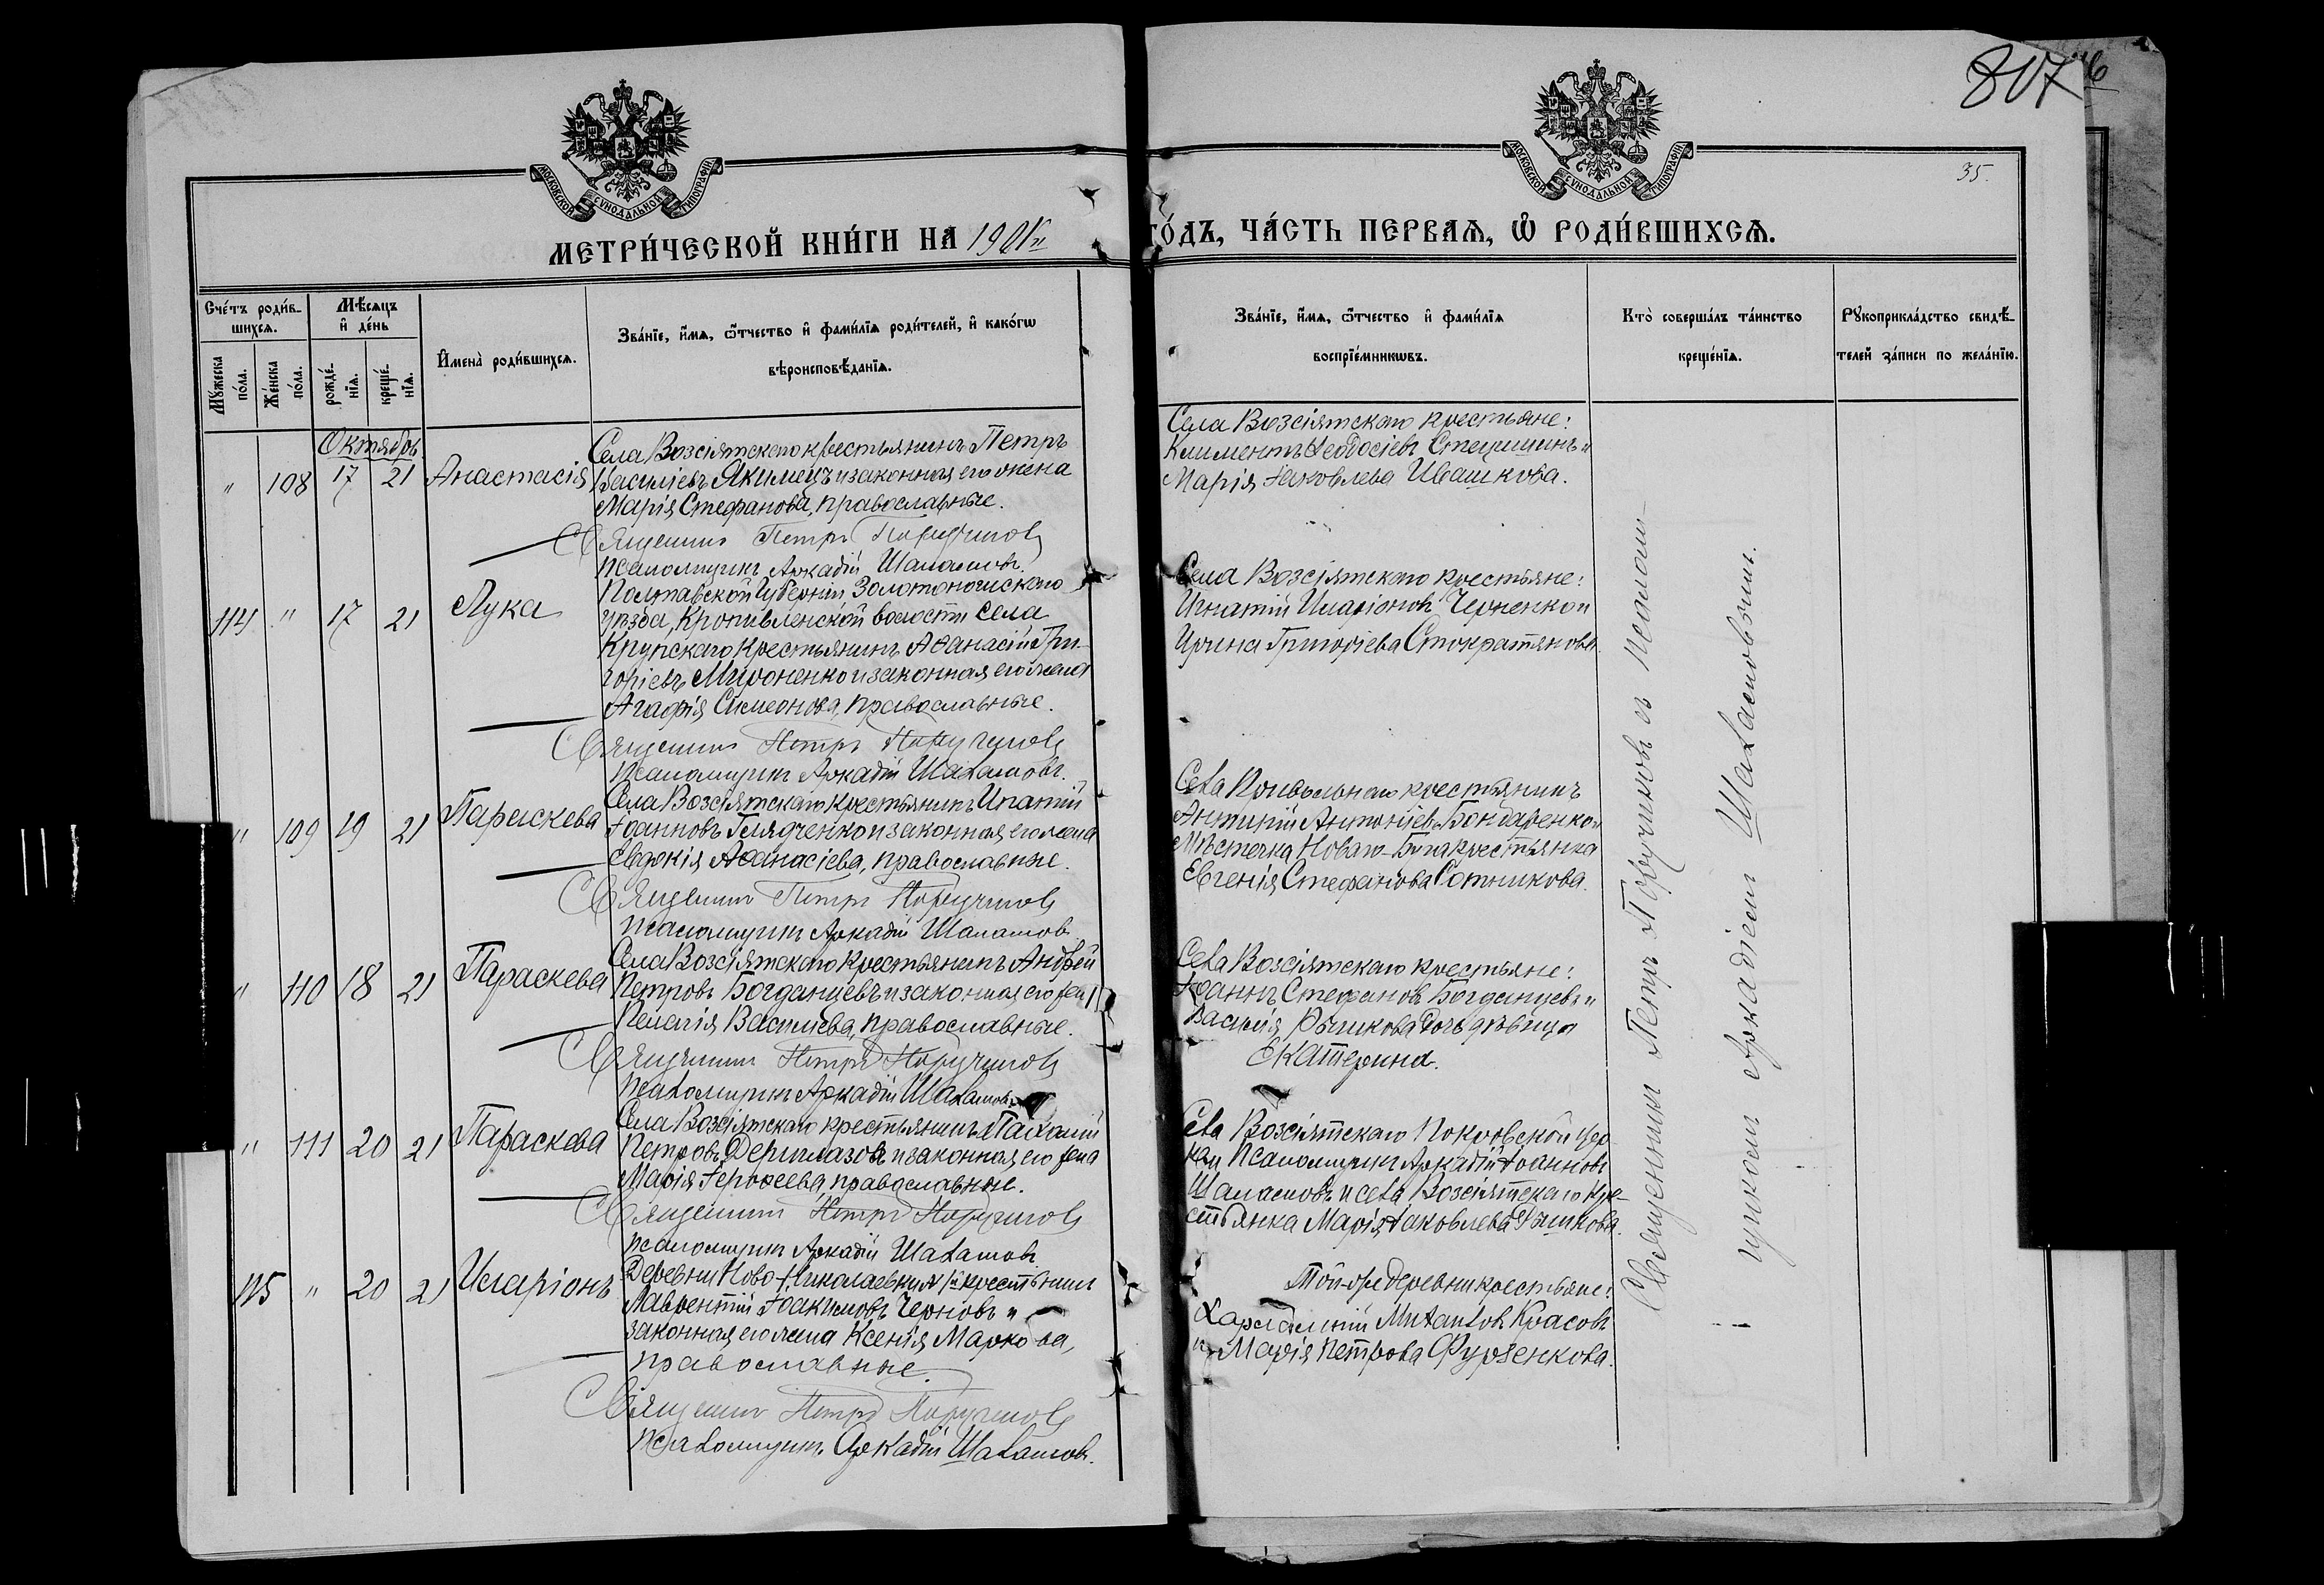 807
35.
МОСКОВСКОЙ СѴНОДАЛЬНОЙ ТИПОГРАФІИ
МОСКОВСКОЙ СѴНОДАЛЬНОЙ ТИПОГРАФІИ
МЕТРИ́ЧЕСКОЙ КНИ́ГИ НА 1901й
ГО́ДЪ, ЧА́СТЬ ПЕРВАѦ, Ѿ РОДИ́ВШИХСѦ.
Сче́тъ роди́в-
шихсѧ.
Мѣ́сѧцъ
и҆ де́нь
Мꙋ́жеска
по́ла.
Же́нска
по́ла.
рожде́-
нїѧ.
креще́-
нїѧ.
И҆мена̀ роди́вшихсѧ.
Зва́нїе, и҆́мѧ, ѻ҆́тчество и҆ фами́лїѧ роди́телей, и҆ како́гѡ
вѣроисповѣ́данїѧ.
Зва́нїе, и҆́мѧ, ѻ҆́тчество и҆ фами́лїѧ
воспрїе́мникѡвъ.
Кто̀ соверша́лъ та́инство
креще́нїѧ.
Рꙋкоприкла́дство свидѣ́-
телей за́писи по жела́нїю.
Октябрь
" 108 17 21 Анастасія
Села Возсіятскаго крестьянинъ Петръ
Василіевъ Якимецъ и законная его жена
Марія Стефанова, православные.
Священникъ Петръ Поручиковъ
Псаломщикъ Аркадій Шаламовъ.
Села Возсіятскаго крестьяне:
Климентъ Ѳеодосіевъ Стецишинъ и
Марія Іаковлева Ивашкова.
114 " 17 21 Лука
Полтавской Губерніи Золотоношскаго
уѣзда, Кропивленской волости села
Крупскаго крестьянинъ Аѳанасій Гри-
горіевъ Мироненко и законная его жена
Агафія Симеонова, православные.
Священникъ Петръ Поручиковъ
Псаломщикъ Аркадій Шаламовъ.
Села Возсіятскаго крестьяне:
Игнатій Иларіоновъ Черненко и
Ирина Григоріева Стократякова.
" 109 19 21 Параскева
Села Возсіятскаго крестьянинъ Ипатій
Іоанновъ Гнядченко и законная его жена
Евдокія Аѳанасіева, православные.
Священникъ Петръ Поручиковъ
Псаломщикъ Аркадій Шаламовъ
Села Привольнаго крестьянинъ
Антипій Антоніевъ Бондаренко и
Мѣстечка Новаго-Буга крестьянка
Евгенія Стефанова Сотникова.
" 110 18 21 Параскева
Села Возсіятскаго крестьянинъ Андрей
Петровъ Богданцевъ и законная его жена
Пелагія Василіева, православные.
Священникъ Петръ Поручиковъ
Псаломщикъ Аркадій Шаламовъ
Села Возсіятскаго крестьяне:
Іоаннъ Стефановъ Богданцевъ и
дочь дѣвица
Екатерина.
" 111 20 21 Параскева
Села Возсіятскаго крестьянинъ Пахомій
Петровъ Дериглазовъ и законная его жена
Марія Героѳеева, православные.
Священникъ Петръ Поручиковъ
Псаломщикъ Аркадій Шаламовъ
Села Возсіятскаго Покровской цер-
кви Псаломщикъ Аркадій Іоанновъ
Шаламовъ и села Возсіятскаго кре-
стьянка Марія Іаковлева
115 " 20 21 Иларіонъ
Деревни Ново-Николаевки крестьянинъ
Лаврентій Іоакимовъ Черновъ и
законная его жена Ксенія Маркова,
православные.
Священникъ Петръ Поручиковъ
Псаломщикъ Аркадій Шаламовъ.
Той-же деревни крестьяне:
Харлампій Михаиловъ Красовъ
и Марія Петрова Фурзенкова.
Священникъ Петръ Поручиковъ съ Псалом-
щикомъ Аркадіемъ Шаламовымъ.